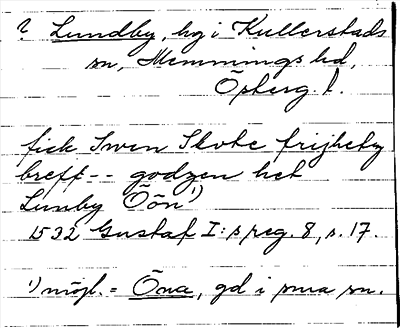 ? Lundby, hg i Kullerstads
sn, Memmings hd,
Österg. l.
fick Swen Skote frijhetz
breff -- godzen het
Lunby Öön ¹)
1532 Gustaf I:s reg. 8, s. 17.
¹) möjl. = Öna, gd i sma sn.